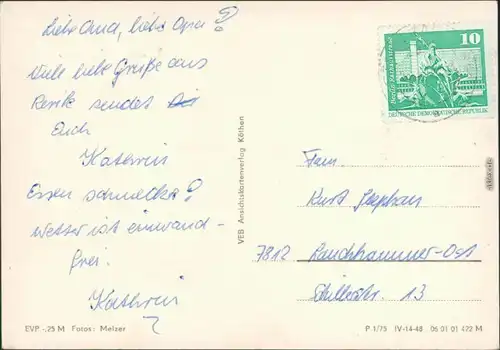 Liebe Oma, lieber Opa!
Viele liebe Grüße aus
sendet
Euch
Katrin
Essen schmeckt!
Wetter ist einwand-
frei.
Kathrin
EVP -,25 M Fotos: Melzer
VEB Ansichtskartenverlag Köthen
10
DEUTSCHE DEMOKRATISCHE REPUBLIK
Fam.
Kurt Stephan
7812 Lauchhammer-Ost
13
P 1/75 IV-14-48 06 01 01 472 M